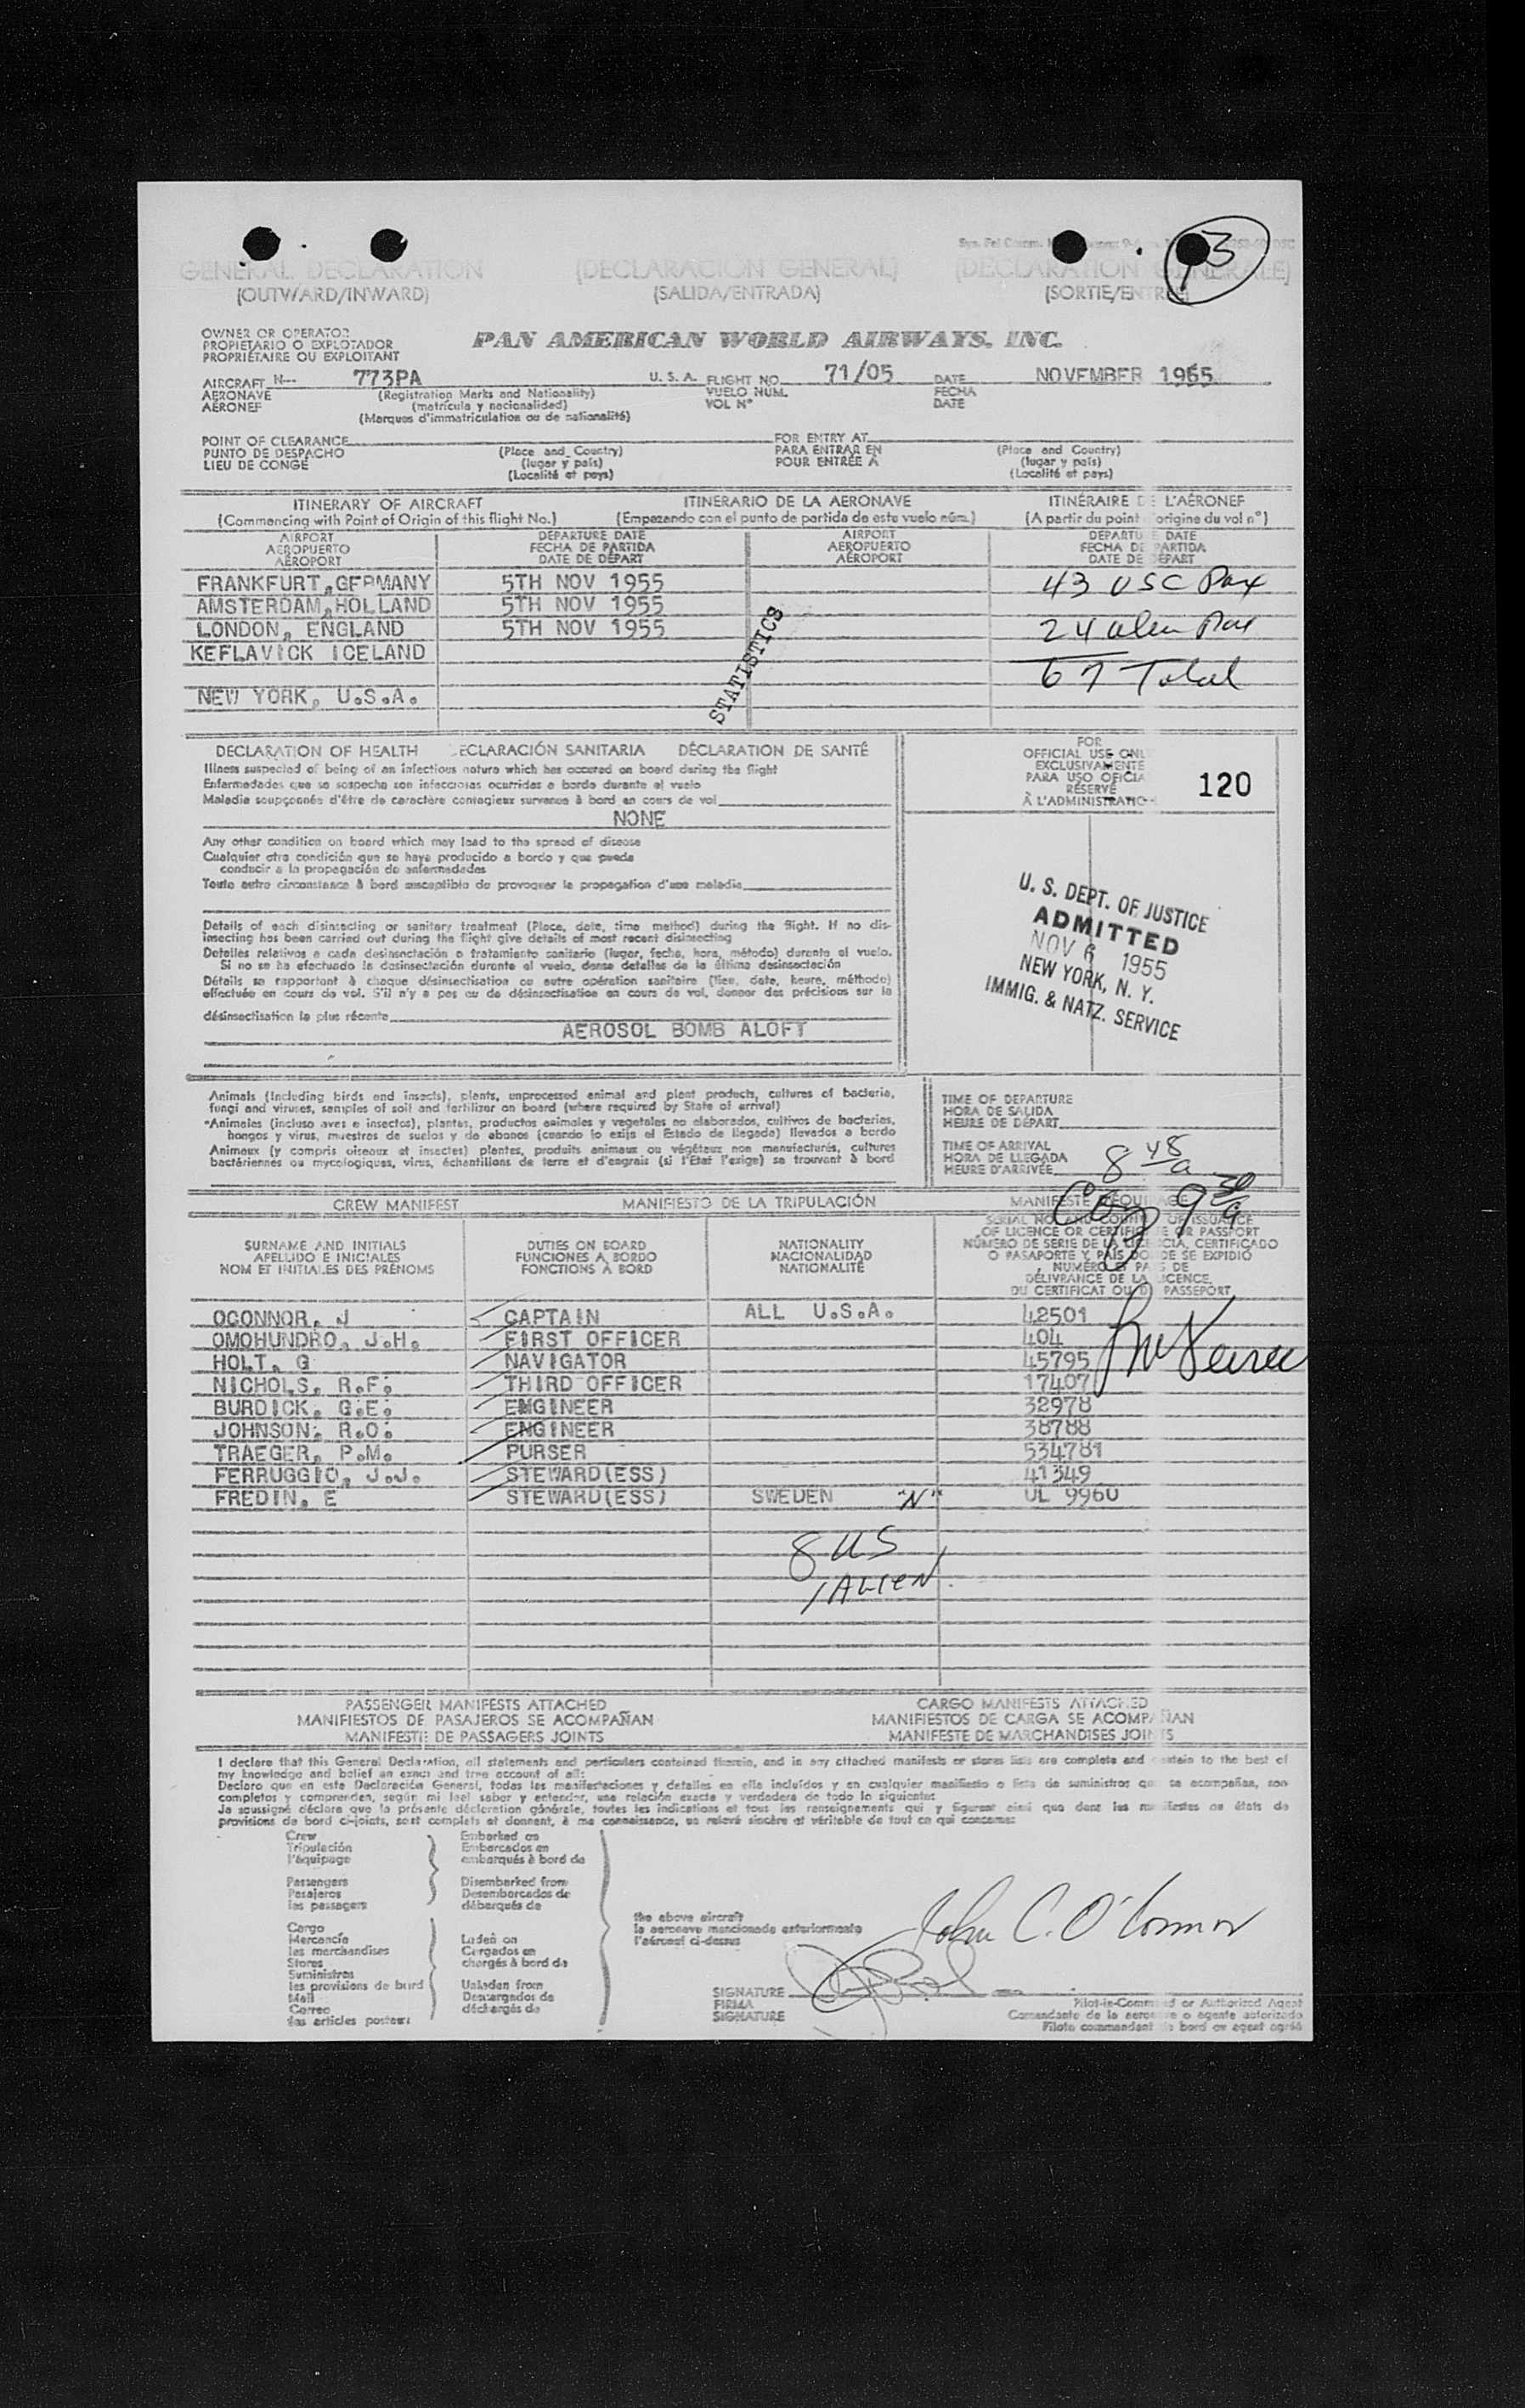 GENERAL DECLARATION (DECLARACION GENERAL) (DECLARATION GENERALE)
(OUTWARD/INWARD) (SALIDA/ENTRADA) (SORTIE/ENTREE)
3
OWNER OR OPERATOR
PROPIETARIO O EXPLOTADOR
PROPRIÉTAIRE OU EXPLOITANT
PAN AMERICAN WORLD AIRWAYS, INC.
AIRCRAFT N-- 773PA U. S. A. FLIGHT NO. 71/05 DATE NOVEMBER 1955
AERONAVE (Registration Marks and Nationality) VUELO NUM. FECHA
AÉRONEF (matrícula y nacionalidad) VOL N° DATE
(Marques d'immatriculation ou de nationalité)
POINT OF CLEARANCE FOR ENTRY AT
PUNTO DE DESPACHO (Place and Country) PARA ENTRAR EN (Place and Country)
LIEU DE CONGÉ (lugar y país) POUR ENTRÉE A (lugar y país)
(Localité et pays) (Localité et pays)
ITINERARY OF AIRCRAFT ITINERARIO DE LA AERONAVE ITINÉRAIRE DE L'AÉRONEF
(Commencing with Point of Origin of this flight No.) (Empezando con el punto de partida de este vuelo núm.) (A partir du point origine du vol n°)
AIRPORT DEPARTURE DATE AIRPORT DEPARTURE DATE
AEROPUERTO FECHA DE PARTIDA AEROPUERTO FECHA DE PARTIDA
AÉROPORT DATE DE DÉPART AÉROPORT DATE DE DÉPART
FRANKFURT,GERMANY 5TH NOV 1955 43 USC Pax
AMSTERDAM,HOLLAND 5TH NOV 1955
LONDON, ENGLAND 5TH NOV 1955 24 alien Pax
KEFLAVICK ICELAND
67 Total
NEW YORK, U.S.A.
STATISTICS
DECLARATION OF HEALTH ECLARACIÓN SANITARIA DÉCLARATION DE SANTÉ
Illness suspected of being of an infectious nature which has occured on board during the flight
Enfermedades que se sospecha son infecciosas ocurridas a bordo durante el vuelo
Maladie soupçonnée d'être de caractère contagieux survenue à bord en cours de vol
NONE
Any other condition on board which may lead to the spread of disease
Cualquier otra condición que se haya producido a bordo y que pueda
conducir a la propagación de enfermedades
Toute autre circonstance à bord susceptible de provoquer la propagation d'une maladie
Details of each disinsecting or sanitary treatment (Place, date, time method) during the flight. If no dis-
insecting has been carried out during the flight give details of most recent disinsecting
Detalles relativos a cada desinsectación o tratamiento sanitario (lugar, fecha, hora, método) durante el vuelo.
Si no se ha efectuado la desinsectación durante el vuelo, dense detalles de la última desinsectación
Détails se rapportant à chaque désinsectisation ou autre opération sanitaire (lieu, date, heure, méthode)
effectuée en cours de vol. S'il n'y a pas eu de désinsectisation en cours de vol, donner des précisions sur la
désinsectisation la plus récente
AEROSOL BOMB ALOFT
FOR
OFFICIAL USE ONL
EXCLUSIVAMENTE
PARA USO OFICIA
RÉSERVÉ
À L'ADMINISTRATIO
120
U. S. DEPT. OF JUSTICE
ADMITTED
NOV 6 1955
NEW YORK, N. Y.
IMMIG. & NATZ. SERVICE
Animals (Including birds and insects), plants, unprocessed animal and plant products, cultures of bacteria,
fungi and viruses, samples of soil and fertilizer on board (where required by State of arrival)
Animales (incluso aves e insectos), plantas, productos animales y vegetales no elaborados, cultivos de bacterias,
hongos y virus, muestras de suelos y de abonos (cuando lo exija el Estado de llegada) llevados a bordo
Animaux (y compris oiseaux et insectes) plantes, produits animaux ou végétaux non manufacturés, cultures
bactériennes ou mycologiques, virus, échantillons de terre et d'engrais (si l'Etat l'exige) se trouvant à bord
TIME OF DEPARTURE
HORA DE SALIDA
HEURE DE DÉPART
TIME OF ARRIVAL
HORA DE LLEGADA
HEURE D'ARRIVÉE 8 48 a
9 30 a
CREW MANIFEST MANIFIESTO DE LA TRIPULACIÓN MANIFESTE D'ÉQUIPAGE
SURNAME AND INITIALS DUTIES ON BOARD NATIONALITY
APELLIDO E INICIALES FUNCIONES A BORDO NACIONALIDAD
NOM ET INITIALES DES PRÉNOMS FONCTIONS À BORD NATIONALITÉ
SERIAL NO. AND COUNTRY OF ISSUANCE
OF LICENCE OR CERTIFICATE OR PASSPORT
NÚMERO DE SERIE DE LA LICENCIA, CERTIFICADO
O PASAPORTE Y PAÍS DONDE SE EXPIDIÓ
NUMÉRO ET PAYS DE
DÉLIVRANCE DE LA LICENCE,
DU CERTIFICAT OU DU PASSEPORT
OCONNOR, J CAPTAIN ALL U.S.A. 42501
OMOHUNDRO, J.H. FIRST OFFICER 404
HOLT, G NAVIGATOR 45795
NICHOLS, R.F. THIRD OFFICER 17407
BURDICK, G.E. ENGINEER 32978
JOHNSON, R.O. ENGINEER 38788
TRAEGER, P.M. PURSER 534781
FERRUGGIO, J.J. STEWARD(ESS) 41349
FREDIN, E STEWARD(ESS) SWEDEN "N" UL 9960
8 US
1 ALIEN
PASSENGER MANIFESTS ATTACHED CARGO MANIFESTS ATTACHED
MANIFIESTOS DE PASAJEROS SE ACOMPAÑAN MANIFIESTOS DE CARGA SE ACOMPAÑAN
MANIFESTE DE PASSAGERS JOINTS MANIFESTE DE MARCHANDISES JOINTS
I declare that this General Declaration, all statements and particulars contained therein, and in any attached manifests or stores lists are complete and contain to the best of
my knowledge and belief an exact and true account of all:
Declaro que en esta Declaración General, todas las manifestaciones y detalles en ella incluídos y en cualquier manifiesto o lista de suministros que se acompañan, son
completos y comprenden, según mi leal saber y entender, una relación exacta y verdadera de todo lo siguiente:
Je soussigné déclare que la présente déclaration générale, toutes les indications et tous les renseignements qui y figurent ainsi que dans les manifestes ou états de
provisions de bord ci-joints, sont complets et donnent, à ma connaissance, un relevé sincère et véritable de tout ce qui concerne:
Crew Embarked on
Tripulación Embarcados en
l'équipage embarqués à bord de
Passengers Disembarked from
Pasajeros Desembarcados de
les passagers débarqués de
Cargo
Mercancía Laden on
les marchandises Cargados en
Stores chargés à bord de
Suministros
les provisions de bord Unladen from
Mail Descargados de
Correo déchargés de
les articles postaux
the above aircraft
la aeronave mencionada anteriormente
l'aéronef ci-dessus
John C. O'Connor
SIGNATURE
FIRMA
SIGNATURE
Pilot-in-Command or Authorized Agent
Comandante de la aeronave o agente autorizado
Pilote commandant de bord ou agent agréé